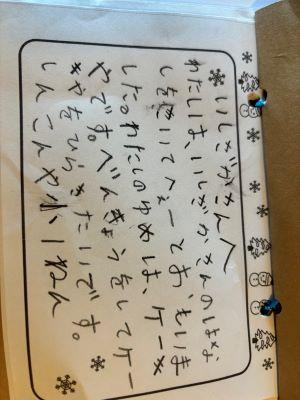 いしざかさんへ
わたしは、いしざかさんのはな
しをきいてへぇーとおもいま
した。わたしのゆめは、ケーキ
やです。べんきょうをしてケー
キやをひらきたいです。
しんこんや小 1ねん